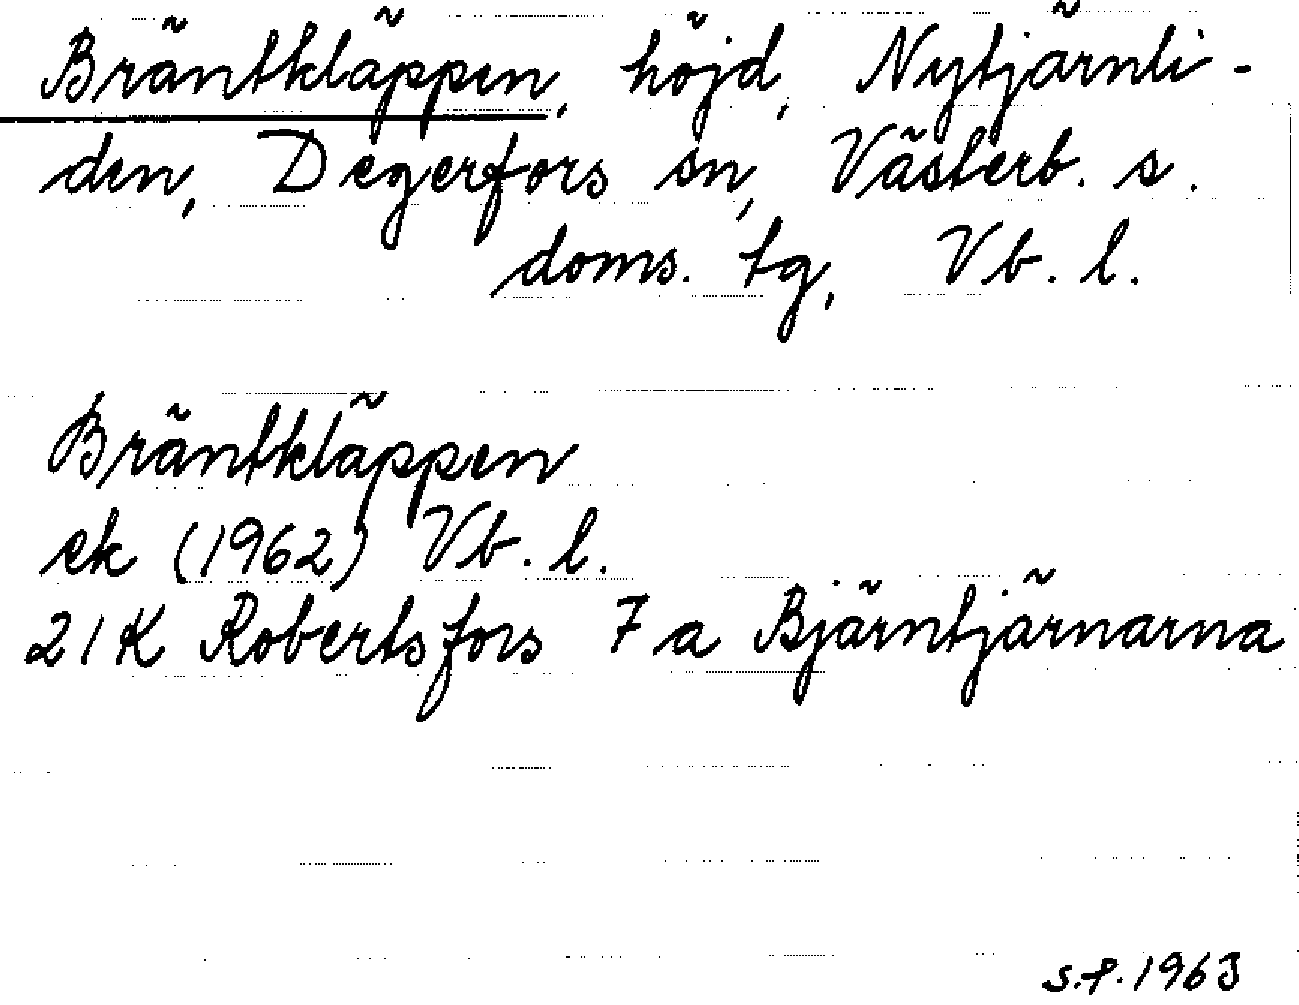 Bräntkläppen, höjd, Nytjärnli-
den, Degerfors sn, Västerb. s.
doms. tg, Vb. l.
Bräntkläppen
ek (1962) Vb. l.
21K Robertsfors 7a Bjärntjärnarna
s.f. 1963